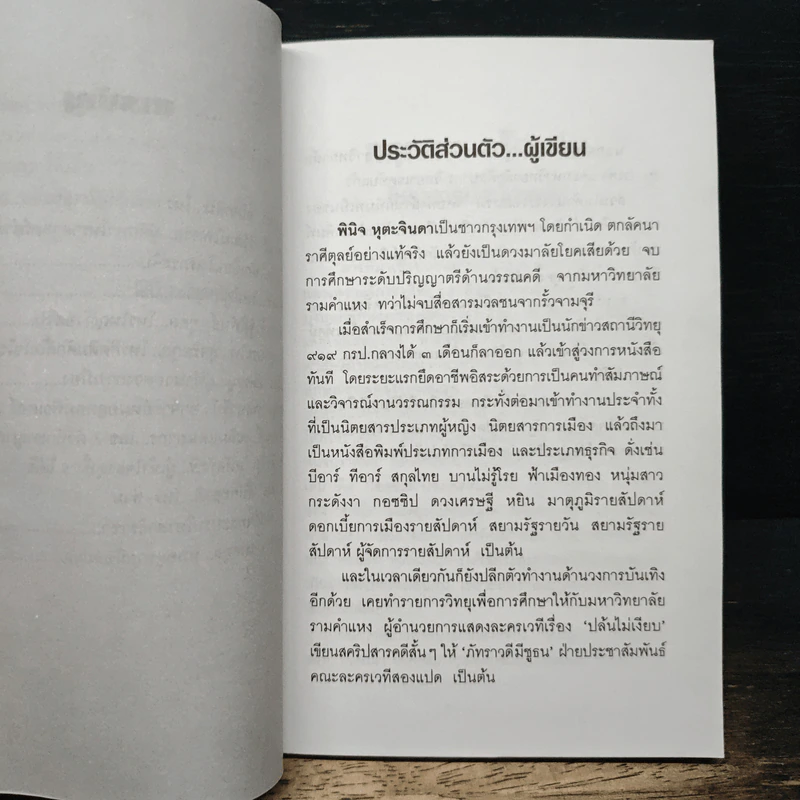 ประวัติส่วนตัว...ผู้เขียน
พินิจ หุตะจินดาเป็นชาวกรุงเทพฯ โดยกำเนิด ตกลัคนา
ราศีตุลย์อย่างแท้จริง แล้วยังเป็นดวงมาลัยโยคเสียด้วย จบ
การศึกษาระดับปริญญาตรีด้านวรรณคดี จากมหาวิทยาลัย
รามคำแหง ทว่าไม่จบสื่อสารมวลชนจากรั้วจามจุรี
เมื่อสำเร็จการศึกษาก็เริ่มเข้าทำงานเป็นนักข่าวสถานีวิทยุ
๙๑๙ กรป.กลางได้ ๓ เดือนก็ลาออก แล้วเข้าสู่วงการหนังสือ
ทันที โดยระยะแรกยึดอาชีพอิสระด้วยการเป็นคนทำสัมภาษณ์
และวิจารณ์งานวรรณกรรม กระทั่งต่อมาเข้าทำงานประจำทั้ง
ที่เป็นนิตยสารประเภทผู้หญิง นิตยสารการเมือง แล้วถึงมา
เป็นหนังสือพิมพ์ประเภทการเมือง และประเภทธุรกิจ ดั่งเช่น
บีอาร์ ทีอาร์ สกุลไทย บานไม่รู้โรย ฟ้าเมืองทอง หนุ่มสาว
กระดังงา กอซซิป ดวงเศรษฐี หยิน มาตุภูมิรายสัปดาห์
ดอกเบี้ยการเมืองรายสัปดาห์ สยามรัฐรายวัน สยามรัฐราย
สัปดาห์ ผู้จัดการรายสัปดาห์ เป็นต้น
และในเวลาเดียวกันก็ยังปลีกตัวทำงานด้านวงการบันเทิง
อีกด้วย เคยทำรายการวิทยุเพื่อการศึกษาให้กับมหาวิทยาลัย
รามคำแหง ผู้อำนวยการแสดงละครเวทีเรื่อง ‘ปล้นไม่เงียบ’
เขียนสคริปสารคดีสั้น ๆ ให้ ‘ภัทราวดีมีชูธน’ ฝ่ายประชาสัมพันธ์
คณะละครเวทีสองแปด เป็นต้น